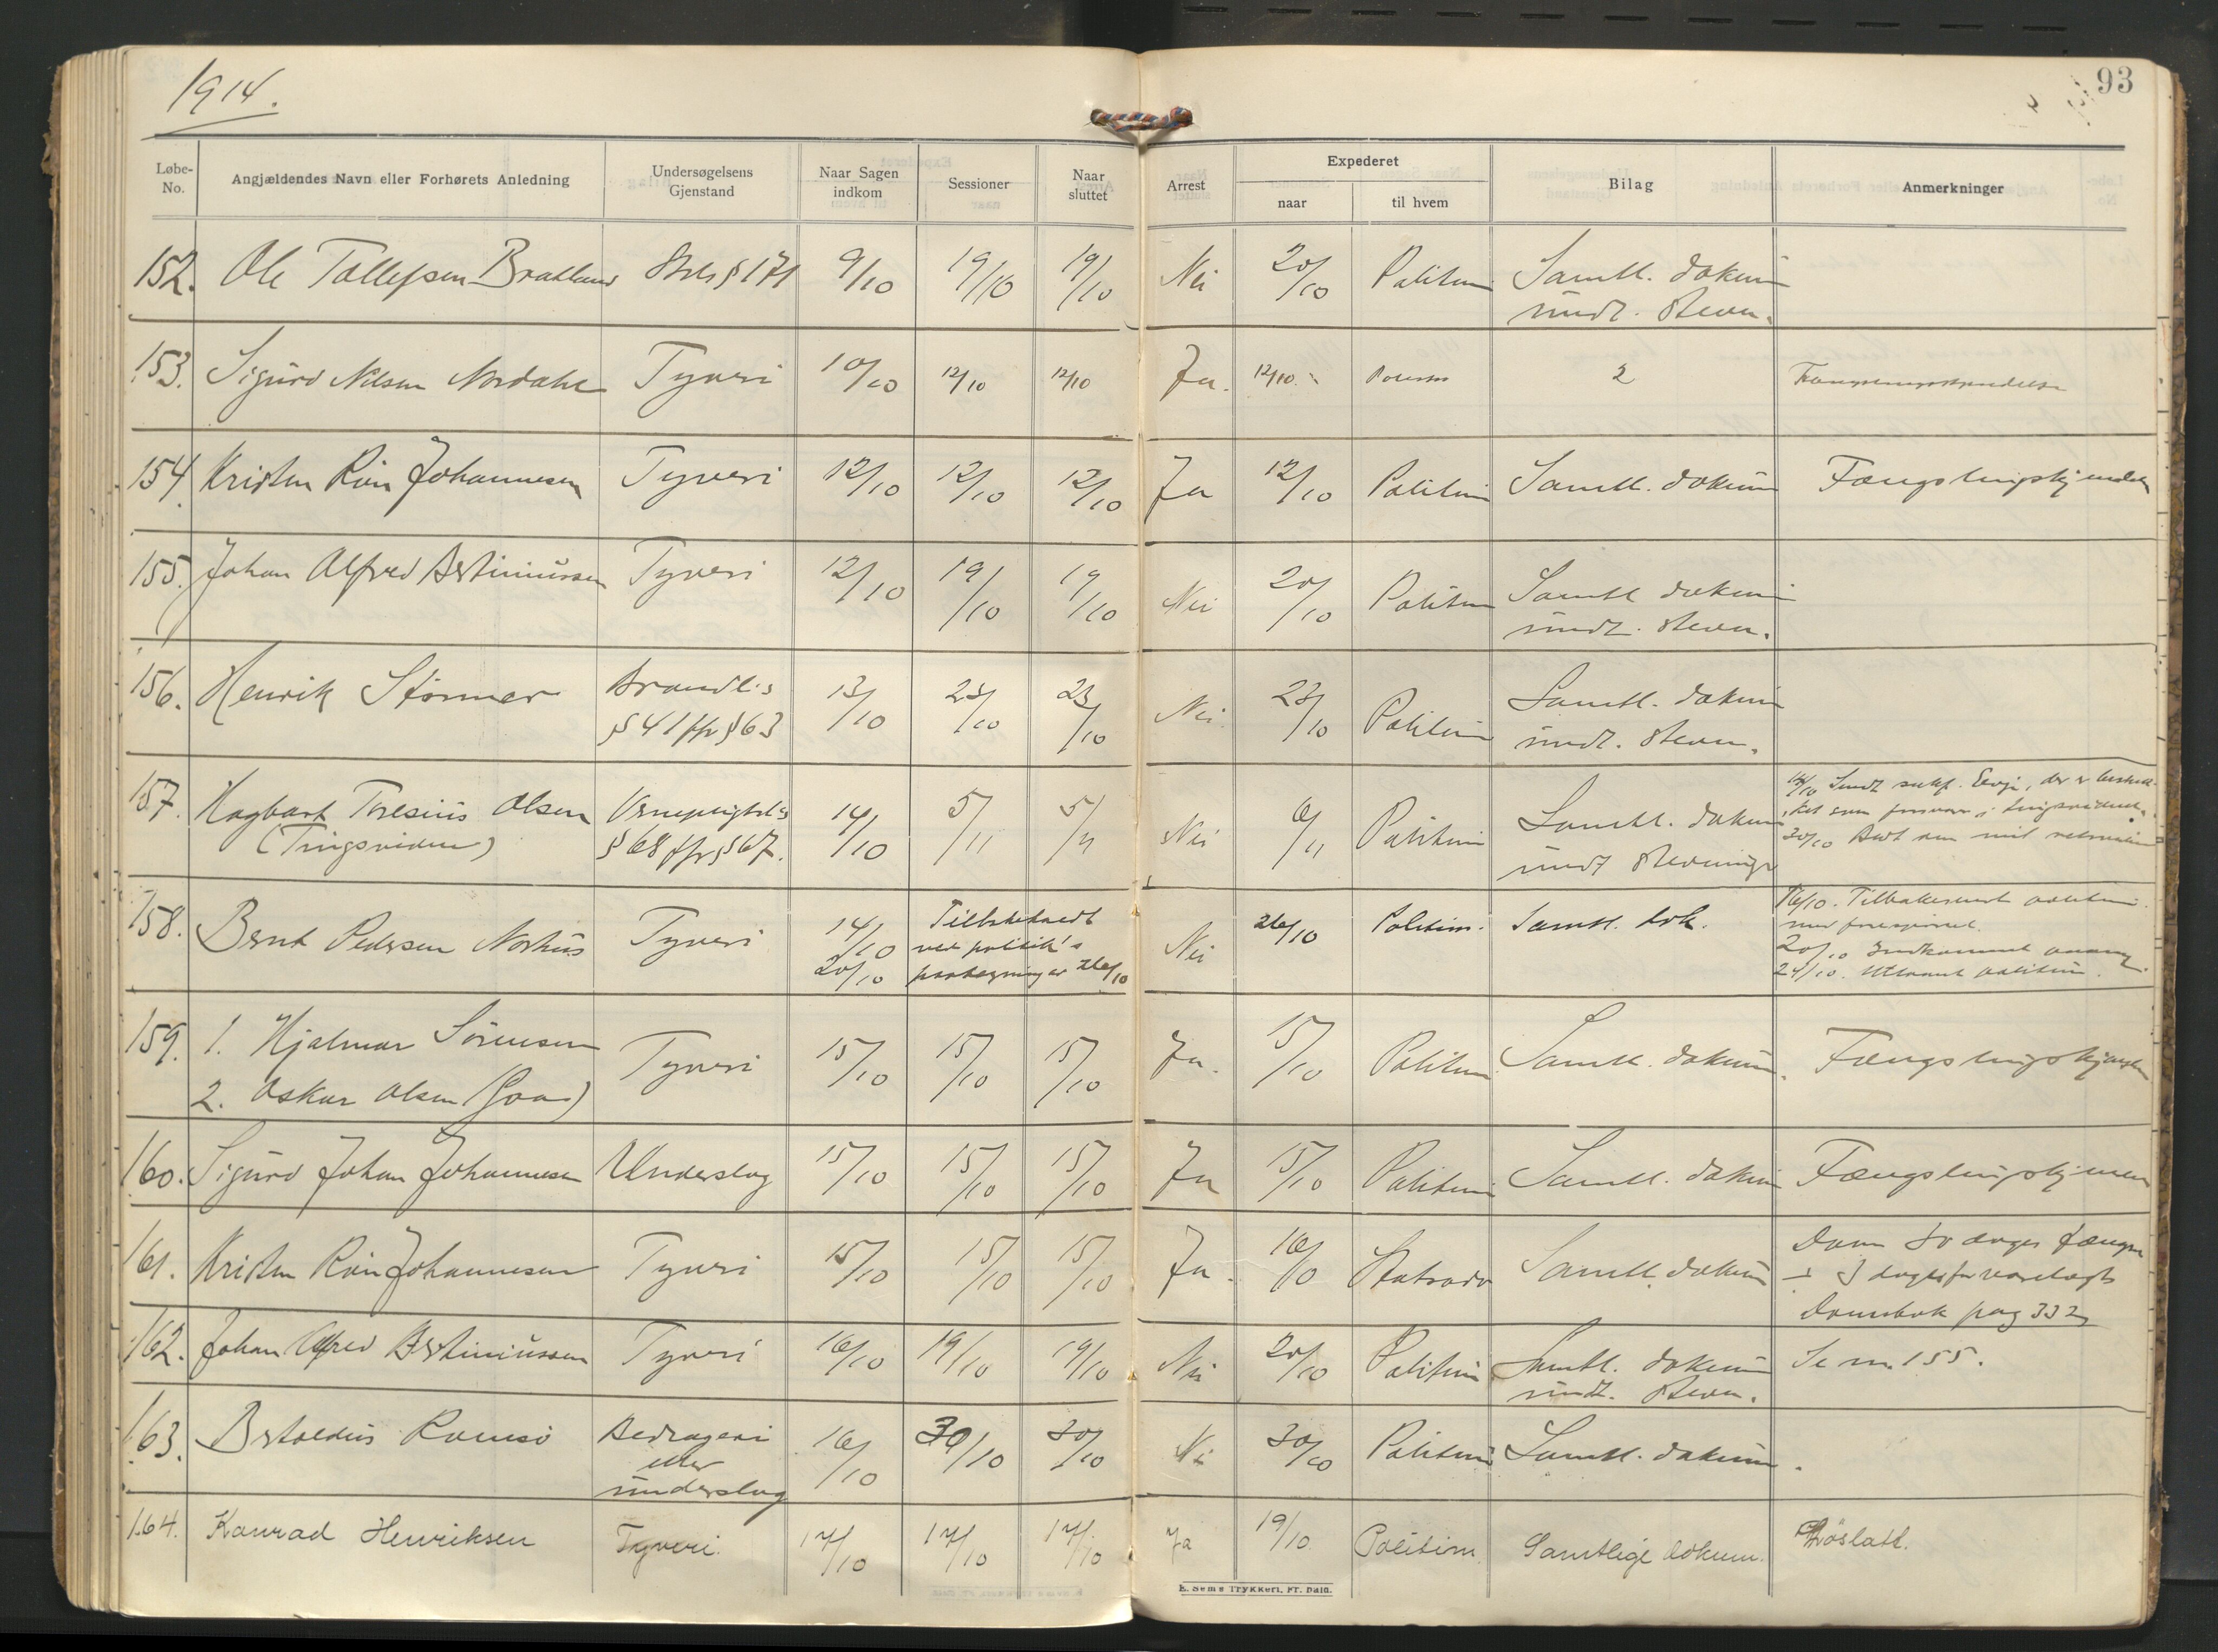 1914.
93
Løbe-No.
Angjældendes Navn eller Forhørets Anledning
Undersøgelsens Gjenstand
Naar Sagen indkom
Sessioner
Naar sluttet
Arrest
Expederet
naar
til hvem
Bilag
Anmerkninger
152. Ole Tollefsen Brattland Strls § 171 9/10 19/10 19/10 Nei 20/10 Politim Samtl. dokum
undt. stevn.
153. Sigurd Nilsen Nordahl Tyveri 10/10 12/10 12/10 Ja. 12/10. Politim 2 Fængslingskjendelse
154 Kristen Roin Johannesen Tyveri 12/10 12/10 12/10 Ja 12/10 Politim Samtl. dokum Fængslingskjendels
155. Johan Alfred Bertiniussen Tyveri 12/10 19/10 19/10 Nei 20/10 Politim Samtl dokum
undt. stevn.
156. Henrik Størmer Brandl.s
§ 41 jfr § 63 13/10 23/10 23/10 Nei 23/10 Politim Samtl. dokum
undt. stevn.
157. Hagbart Toresius Olsen Vernepligtsl.s 14/10 5/11 5/11 Nei 6/11 Politim Samtl. dokum
(Tingsvidne) § 68 jfr § 67. undt stevninge
14/10 Sendt sakf. der er beskik-
ket som forsvar i tingsvidnet.
20/10
158. Bernt Pedersen Norhus Tyveri 14/10 Tilbakekaldt Nei 26/10 Politim. Samtl. dok.
20/10 ved politik's
paategning av 26/10
16/10. Tilbakesendt politim.
med forespørsel.
20/10 Indkommet
24/10. Utlaant politim.
159. 1. Hjalmar Sørensen Tyveri 15/10 15/10 15/10 Ja. 15/10 Politim Samtl. dokum. Fængslingskjendels
2. Oskar Olsen
160. Sigurd Johan Johannesen Underslag 15/10 15/10 15/10 Ja 15/10 Politim Samtl. dokum Fængslingskjennels
161. Kristen Roin Johannesen Tyveri 15/10 15/10 15/10 Ja. 16/10 Statsadv Samtl. dokum Dom 80 dages fængsel
÷ 3 dages for varetægts
Dombok pag 332
162. Johan Alfred Bertiniussen Tyveri 16/10 19/10 19/10 Nei 20/10 Politim Samtl. dokum Se nr. 155.
undt. stevn.
163. Bertoldus Romsø Bedrageri
eller
underslag 16/10 30/10 30/10 Nei 30/10 Politim Samtl. dokum.
164. Konrad Henriksen Tyveri. 17/10 17/10 17/10 Ja 19/10 Politim Samtlige dokum. Løslatt.
E. Sems Trykkeri, Fr. hald.